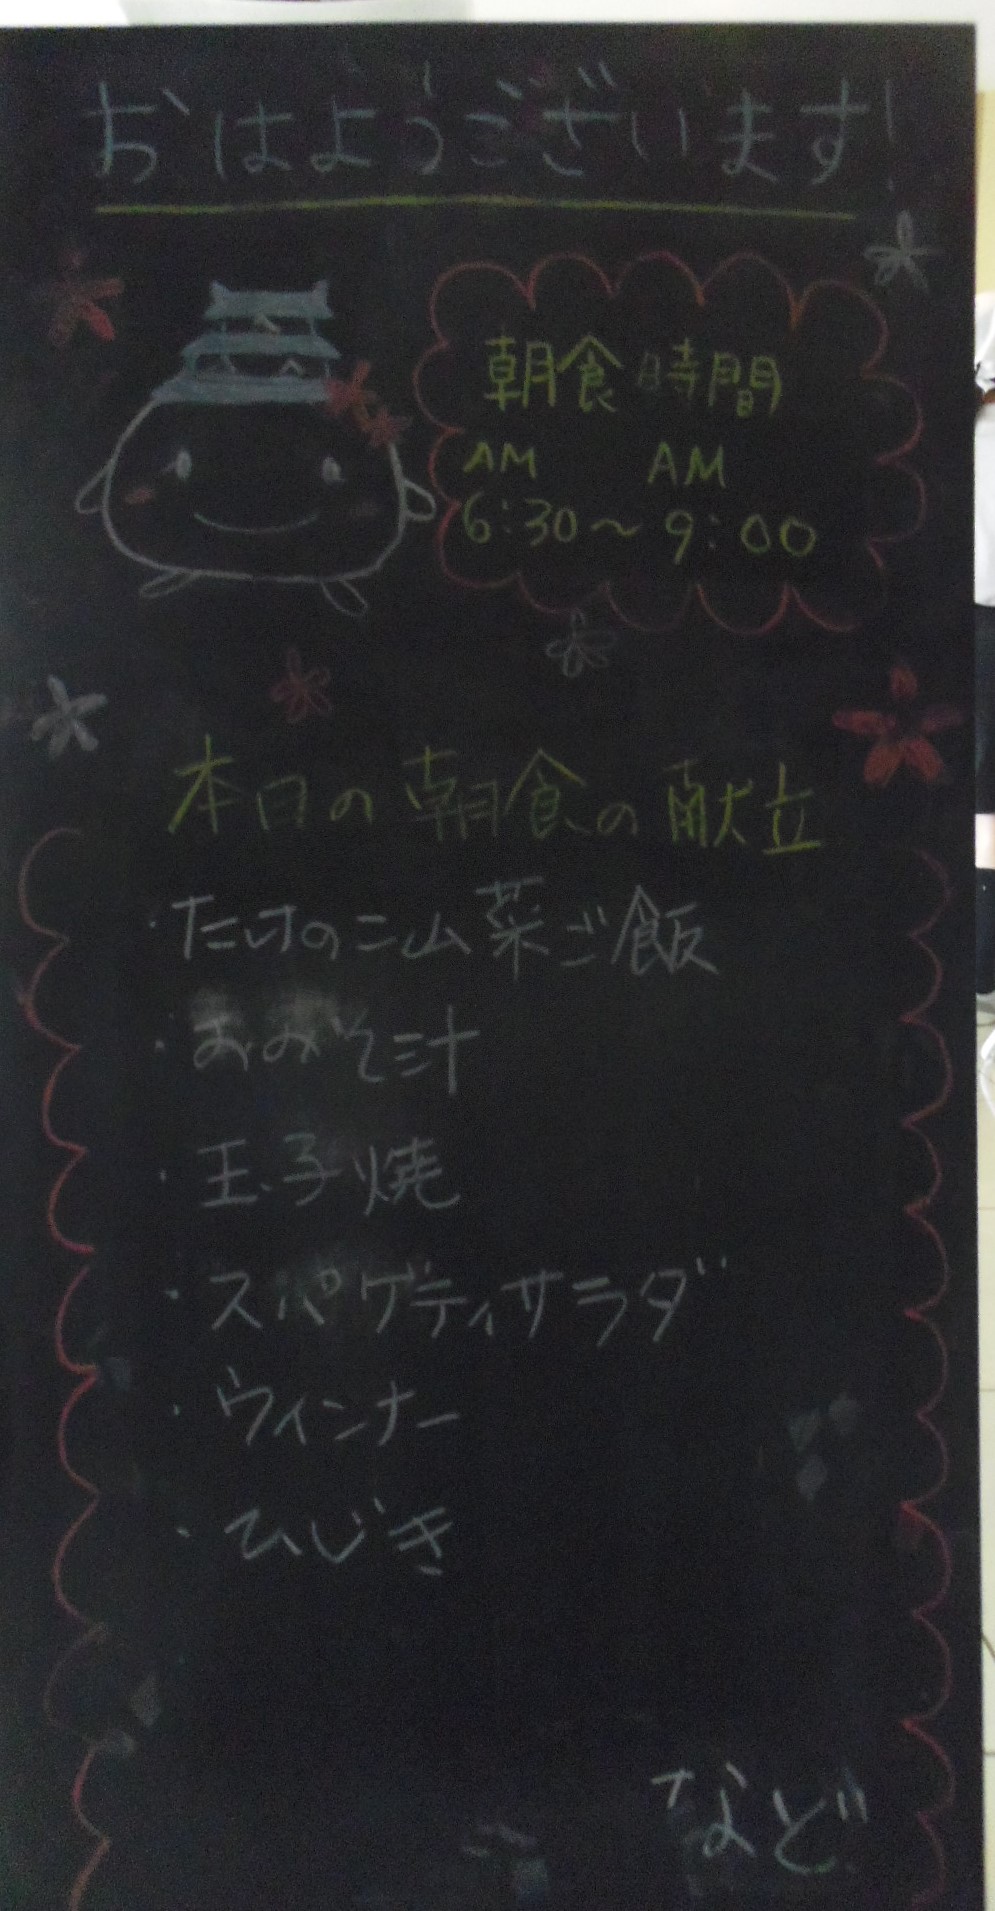 おはようございます!
朝食時間
AM AM
6:30〜9:00
本日の朝食の献立
・たけのこ山菜ご飯
・おみそ汁
・玉子焼
・スパゲティサラダ
・ウィンナー
・ひじき
など